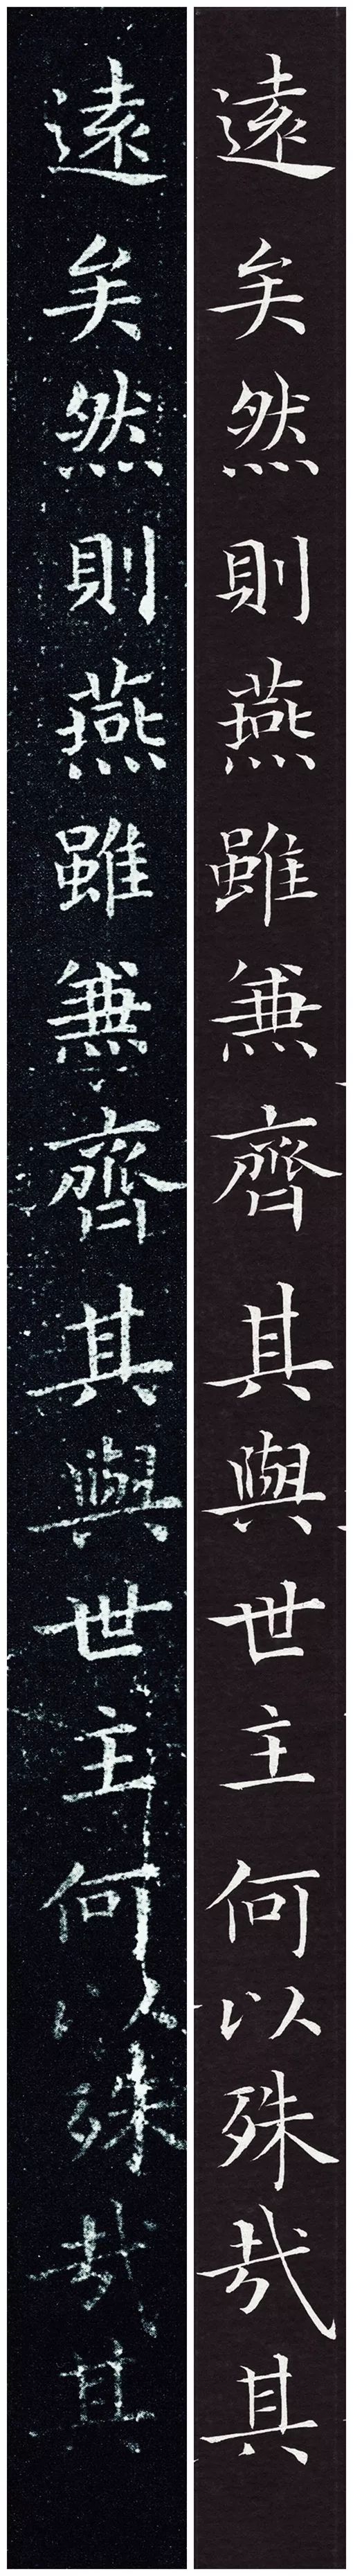 遠矣然則燕雖兼齊其與世主何以殊哉其
遠矣然則燕雖兼齊其與世主何以殊哉其